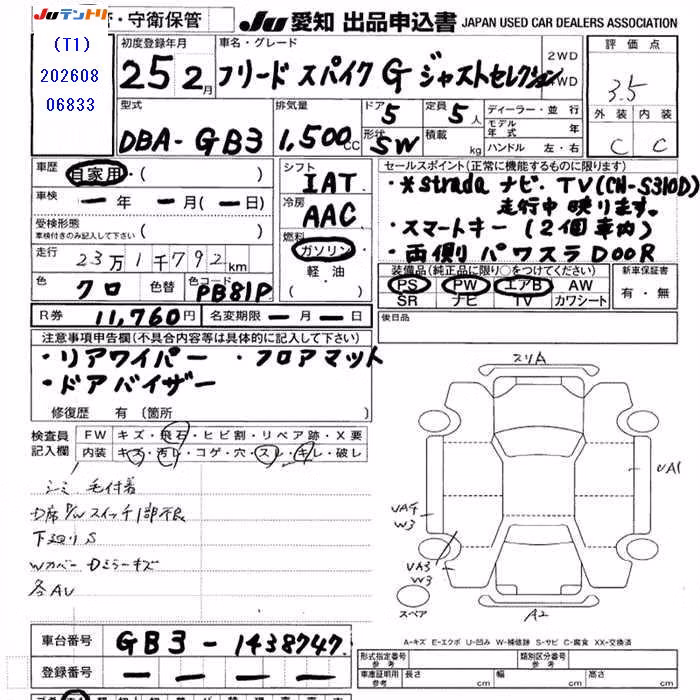 Juテントリ 守衛保管 Ju 愛知 出品申込書 JAPAN USED CAR DEALERS ASSOCIATION
(T1)
202608
06833
初度登録年月 車名・グレード 2WD 4WD 評価点
25 2月 フリード スパイク G ジャストセレクション 3.5
型式 排気量 ドア 5 定員 5人 ディーラー・並行 外装 内装
DBA-GB3 1,500cc 形状 SW 積載 kg モデル年式 年 C C
ハンドル 左・右
車歴 自家用・( ) シフト IAT
セールスポイント(正常に機能するものに限ります)
・*strada ナビ・TV(CN-S310D)
走行中映ります。
・スマートキー(2個車内)
・両側パワスラDOOR
車検 ー年 ー月(ー日) 冷房 AAC
受検形態
車検付きのみ記入して下さい ( )
燃料 ガソリン・軽油
走行 23万1千792km
色 クロ 色替 色コード PB81P
装備品(純正品に限り○をつけてください) 新車保証書
PS PW エアB AW 有・無
SR ナビ TV カワシート
R券 11,760円 名変期限 ー月ー日
後日品
注意事項申告欄(不具合内容等は具体的に記入して下さい)
・リアワイパー ・フロアマット
・ドアバイザー
修復歴 有 (箇所 )
検査員記入欄 FW キズ・飛石・ヒビ割・リペア跡・X要
内装 キズ・汚レ・コゲ・穴・スレ・キレ・破レ
シミ 毛付着
D席P/Wスイッチ1部不良
下廻りS
Wカバー Dミラーキズ
各AU
スリA
UA1
UA4
W3
UA3
W3
スペア
A2
A-キズ E-エクボ U-凹み W-補修跡 S-サビ C-腐食 XX-交換済
車台番号 GB3-1438747
登録番号 ー ー ー ー
形式指定番号 参考 類別区分番号 参考
車庫証明用 参考 長さ cm 幅 cm 高さ cm